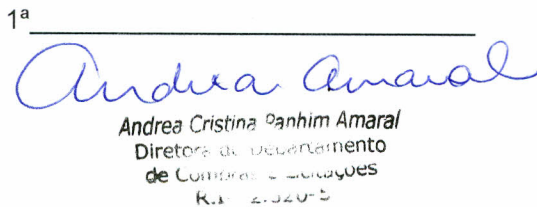 1ª
Andrea Amaral
Andrea Cristina Panhim Amaral
Diretora de Departamento
de Compras e Licitações